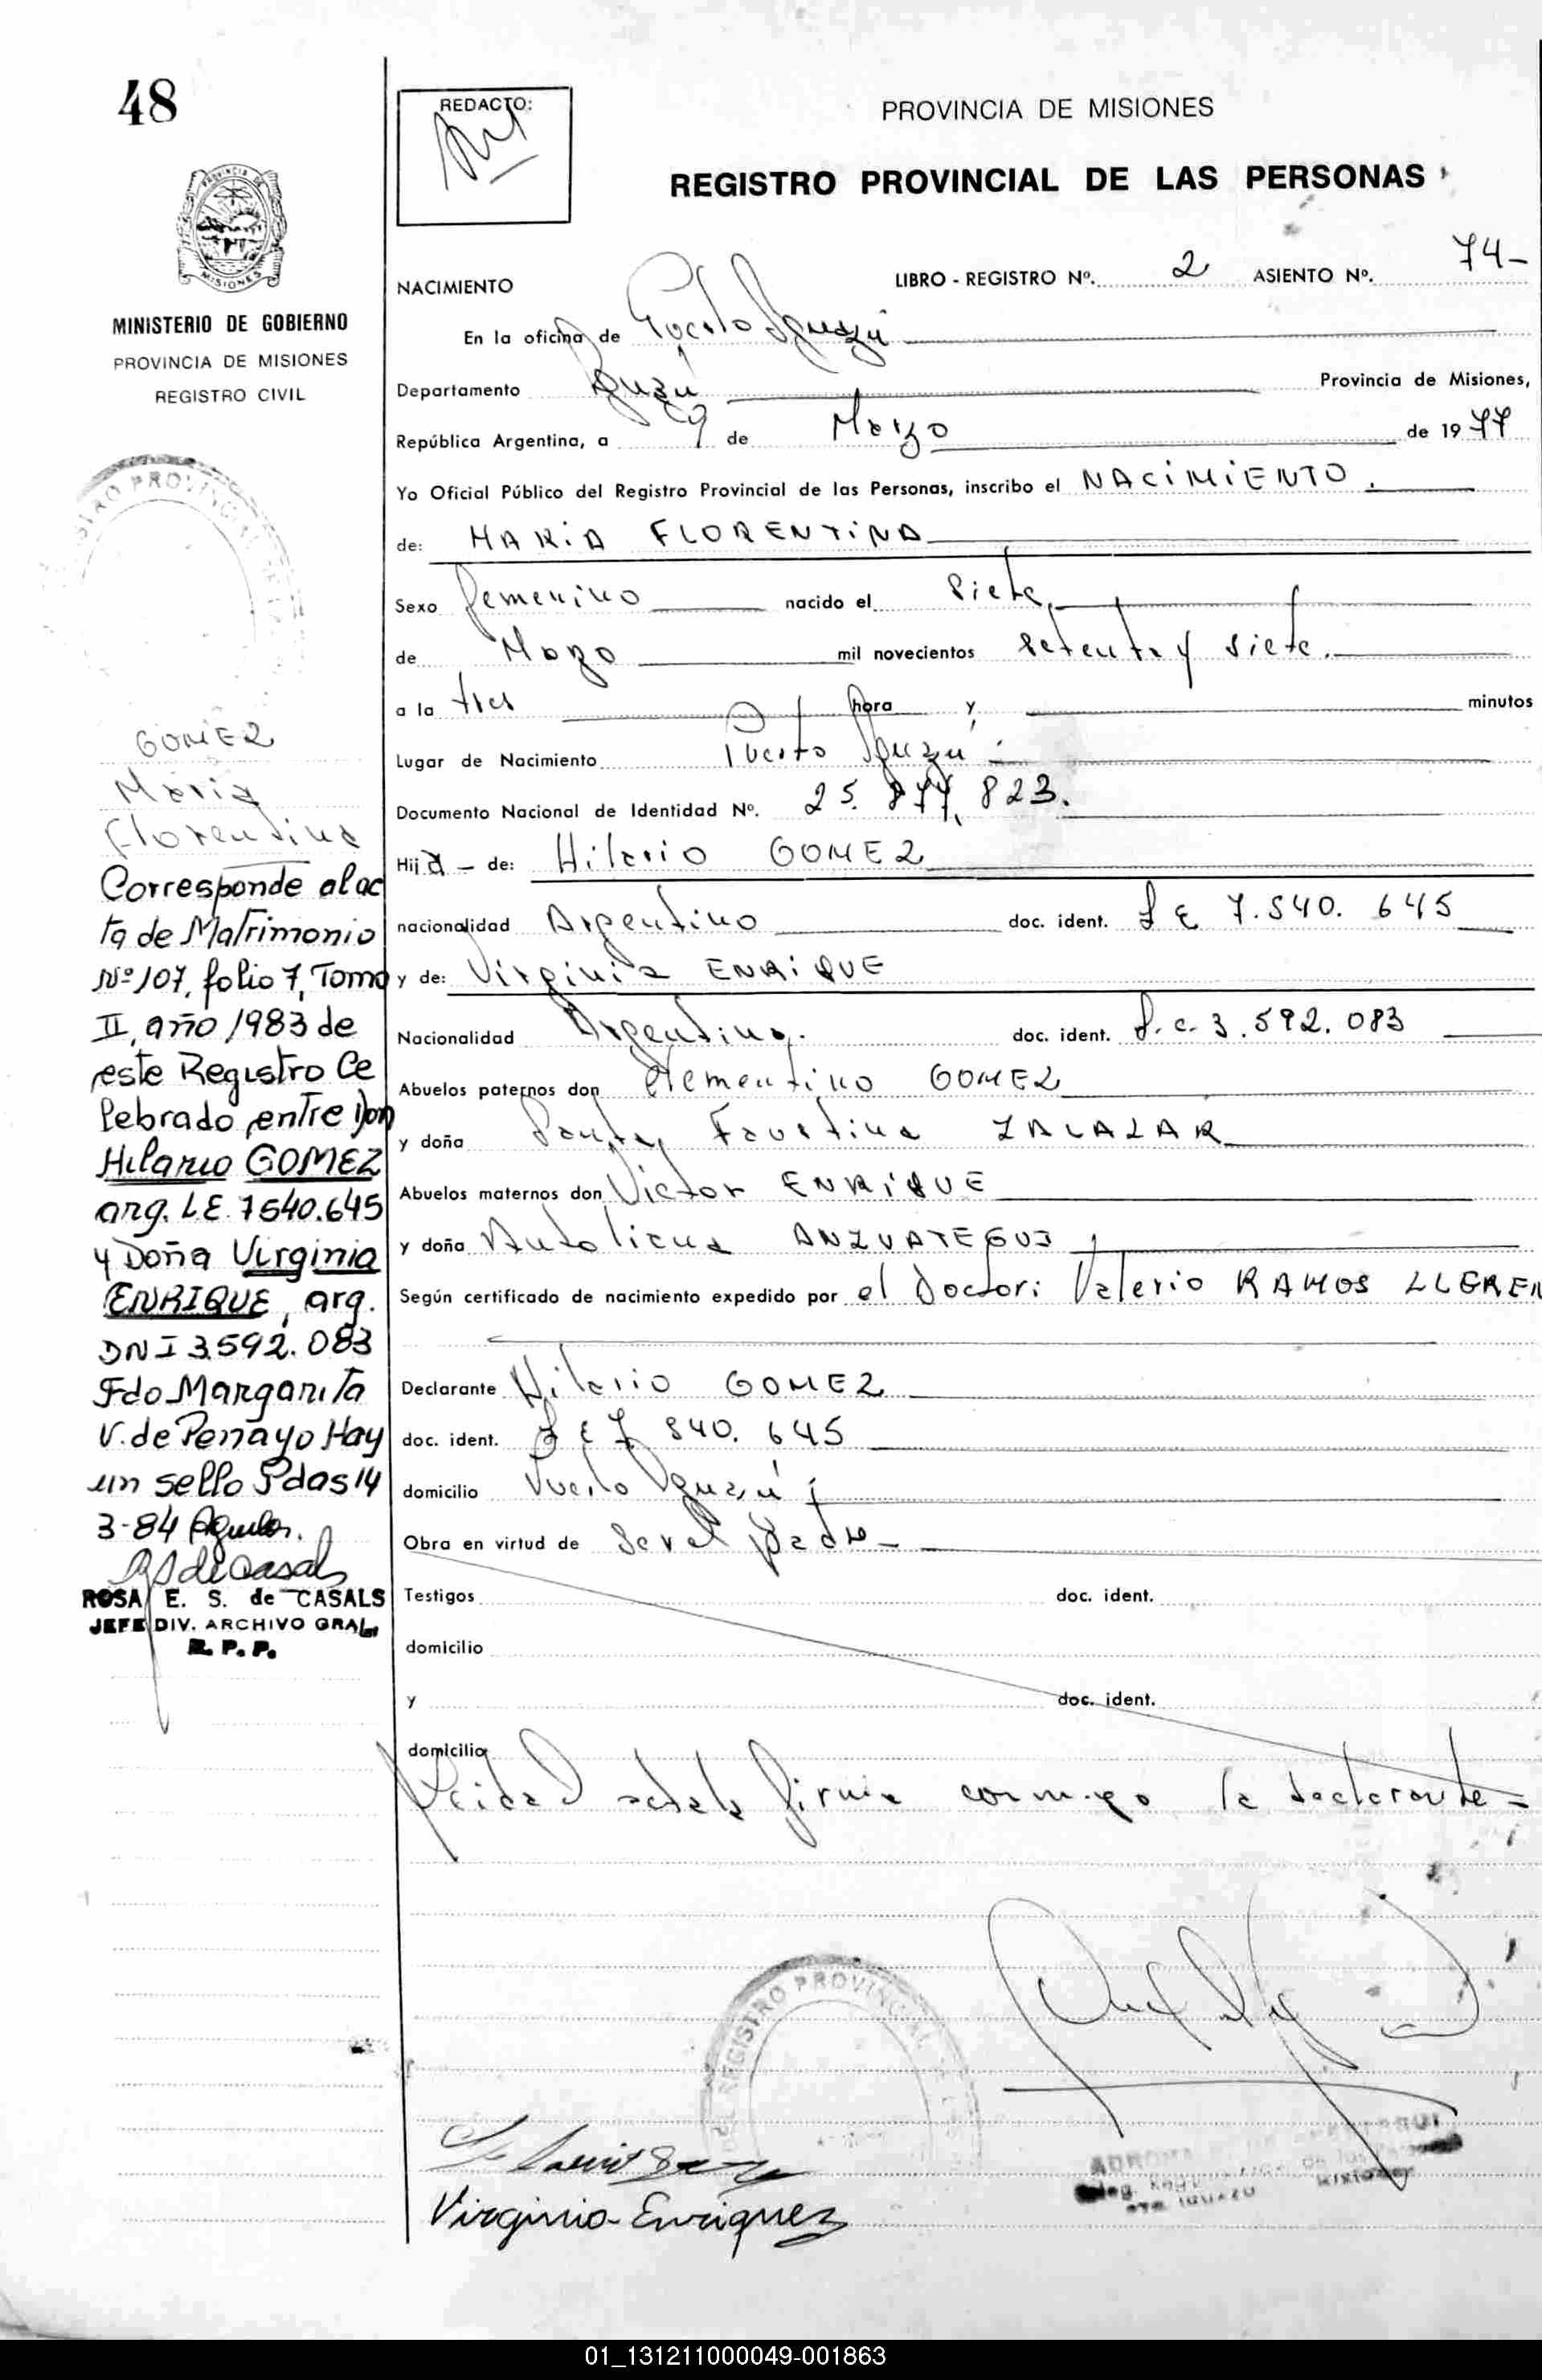 48
REDACTO:
PROVINCIA DE MISIONES
REGISTRO PROVINCIAL DE LAS PERSONAS
MINISTERIO DE GOBIERNO
PROVINCIA DE MISIONES
REGISTRO CIVIL
NACIMIENTO
LIBRO - REGISTRO Nº. 2 ASIENTO Nº. 74-
En la oficina de Puerto Iguazú
Departamento Iguazú Provincia de Misiones,
República Argentina, a 9 de Marzo de 1977
Yo Oficial Público del Registro Provincial de las Personas, inscribo el NACIMIENTO.
de: MARIA FLORENTINA
Sexo femenino nacido el siete,
de Marzo mil novecientos setenta y siete.
a la tres hora y minutos
Lugar de Nacimiento Puerto Iguazú
Documento Nacional de Identidad Nº. 25.877.823.
Hija - de: Hilario GOMEZ
nacionalidad Argentino doc. ident. L E 7.540.645
y de: Virginia ENRIQUE
Nacionalidad Argentina. doc. ident. L.C. 3.592.083
Abuelos paternos don Clementino GOMEZ
y doña Faustina ZALAZAR
Abuelos maternos don Victor ENRIQUE
y doña ANZUATEGUI
Según certificado de nacimiento expedido por el Doctor: Valerio RAMOS LLEREN
Declarante Hilario GOMEZ
doc. ident. L E 7 540.645
domicilio Puerto Iguazú
Obra en virtud de ser el padre
Testigos doc. ident.
domicilio
y doc. ident.
domicilio
Leida el acta la firma conmigo la declarante =
Virginia Enriquez
REGISTRO PROVINCIAL
GOMEZ
Maria
Florentina
Corresponde al ac
ta de Matrimonio
Nº 107, folio 7, Tomo
II, año 1983 de
este Registro Ce
lebrado entre don
Hilario GOMEZ
arg. L.E. 7540.645
y Doña Virginia
ENRIQUE, arg.
DNI 3.592.083
Fdo Margarita
V. de Penayo Hay
un sello Pdas 14
3-84
ROSA E. S. de CASALS
JEFE DIV. ARCHIVO GRAL.
R. P. P.
01_131211000049-001863